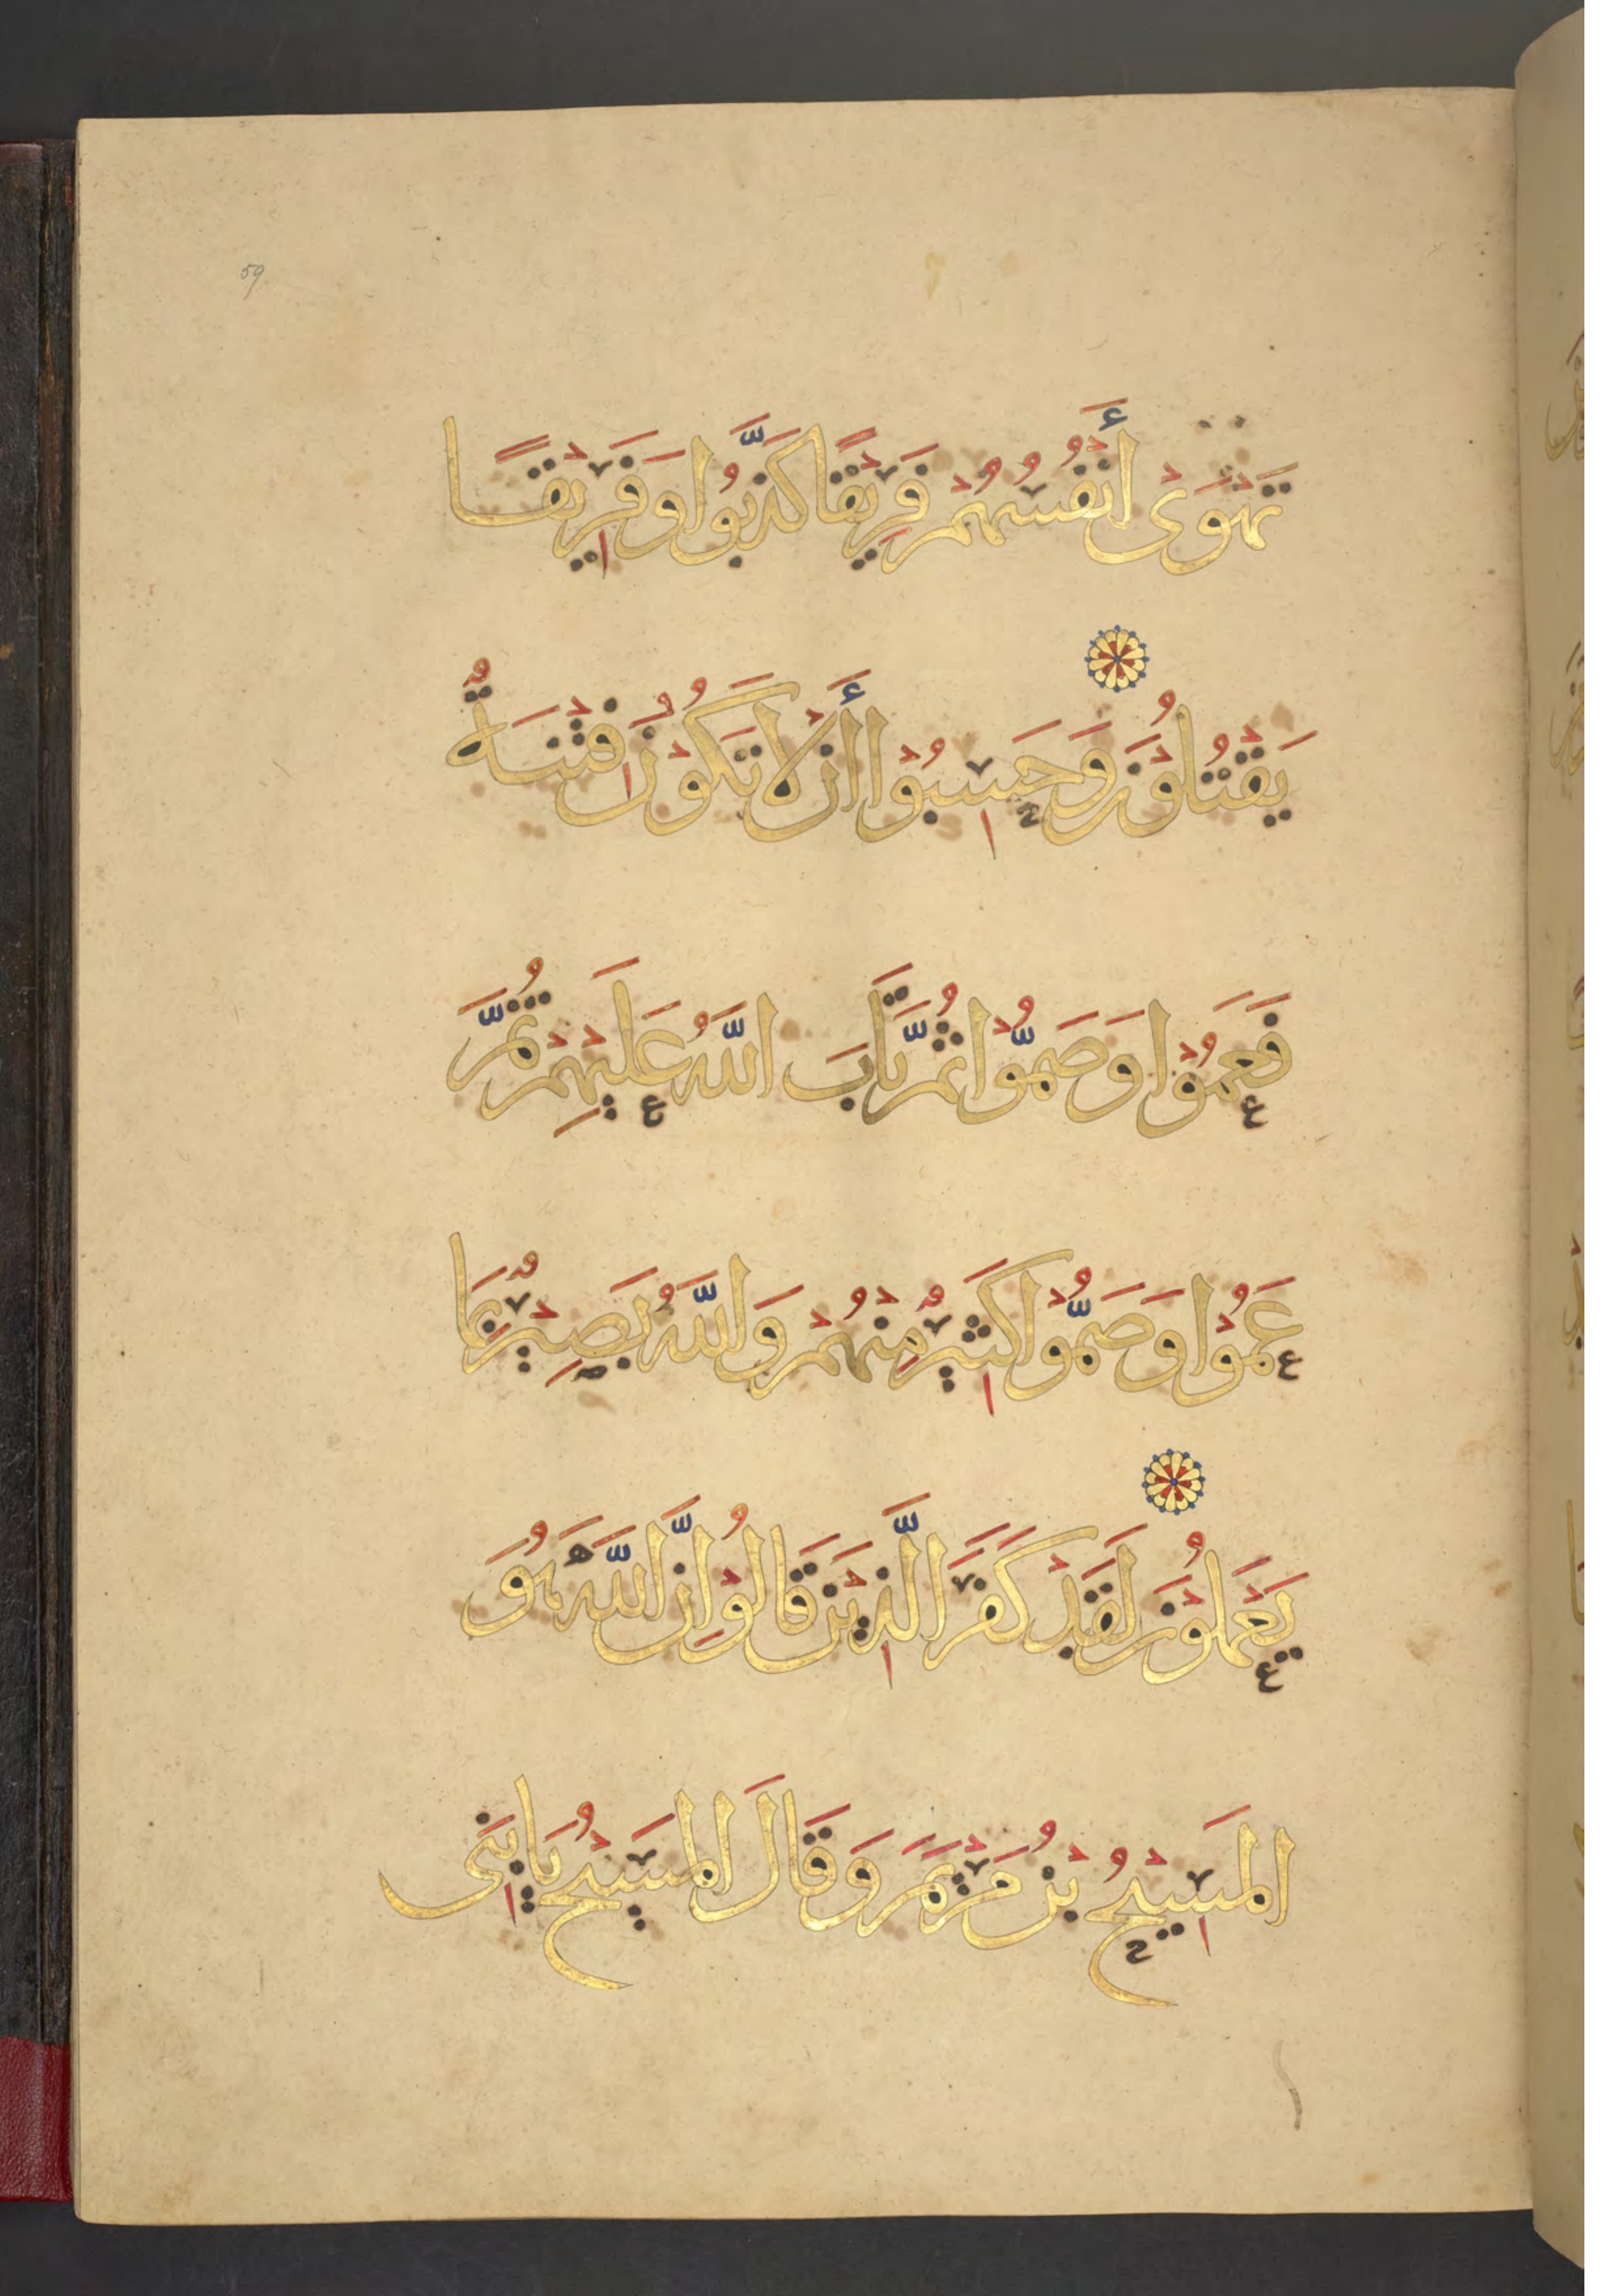 59
تَهْوَىْ أَنْفُسُهُمْ فَرِيْقًا كَذَّبُوا وَفَرِيْقًا
يَقْتُلُوْنَ وَحَسِبُوْا أَنْ لَا تَكُوْنُ فِتْنَةٌ
فَعَمُوْا وَصَمُّوْا ثُمَّ تَابَ اللَّهُ عَلَيْهِمْ ثُمَّ
عَمُوْا وَصَمُّوْا كَثِيْرٌ مِنْهُمْ وَاللَّهُ بَصِيْرٌ بِمَا
يَعْمَلُوْنَ لَقَدْ كَفَرَ الَّذِيْنَ قَالُوْا إِنَّ اللَّهَ هُوَ
الْمَسِيْحُ بْنُ مَرْيَمَ وَقَالَ الْمَسِيْحُ يَابَنِى